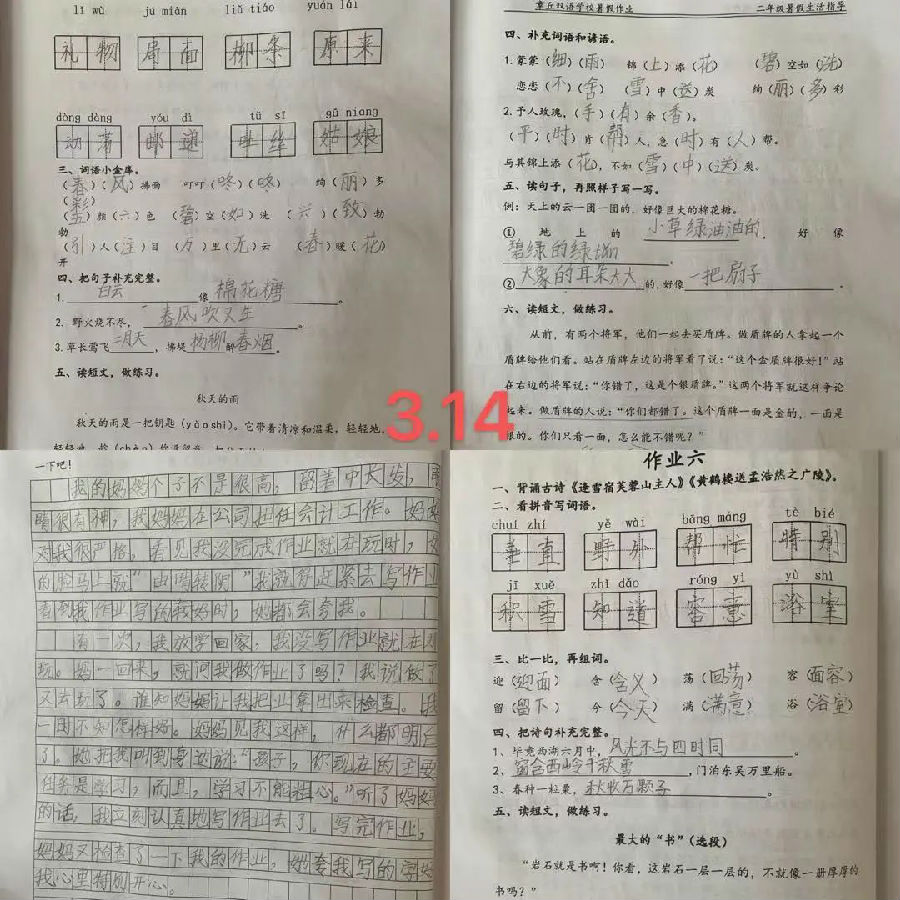 lǐ wù jú miàn liǔ tiáo yuán lái
礼物 局面 柳条 原来
dòng dòng yóu dì tǔ sī gū niang
邮递 姑娘
三、词语小金库。
(春)(风)拂面 叮叮(咚)(咚) 绚(丽)多(彩)
(五)颜(六)色 (碧)空(如)洗 (兴)(致)勃勃
(引)人(注)目 (万)里(无)云 (春)暖(花)开
四、把句子补充完整。
1. 白云 像 棉花糖。
2. 野火烧不尽,春风吹又生。
3. 草长莺飞二月天,拂堤杨柳醉春烟。
五、读短文,做练习。
秋天的雨
秋天的雨是一把钥匙(yàoshi)。它带着清凉和温柔,轻轻地,
章丘双语学校暑假作业 二年级暑假生活指导
四、补充词语和谚语。
1. 蒙蒙(细)(雨) 锦(上)添(花) (碧)空如(洗)
恋恋(不)(舍) (雪)中(送)炭 绚(丽)(多)彩
2. 予人玫瑰,(手)(有)余(香)。
(平)(时)肯(帮)人,急(时)有(人)帮。
与其锦上添(花),不如(雪)(中)(送)炭。
五、读句子,再照样子写一写。
例:天上的云一团一团的,好像巨大的棉花糖。
① 地上的 小草绿油油的,好像
碧绿的绿
② 大象的耳朵大大的,好像 一把扇子。
六、读短文,做练习。
从前,有两个将军,他们一起去买盾牌。做盾牌的人拿起一个
盾牌给他们看。站在盾牌左边的将军看了说:“这个金盾牌很好!”站
在右边的将军说:“你错了,这是个银盾牌。”这两个将军就这样争论
起来。做盾牌的人说:“你们都错了。这个盾牌一面是金的,一面是
银的。你们只看一面,怎么能不错呢?”
3.14
一下吧!
我的妈妈个子不是很高,留着中长发,
睛很有神,我妈妈在公司担任会计工作。妈
对我很严格,看见我没完成作业就在玩时,
的脸马上就“由晴转阴”我就得赶紧去写作业
看到我作业写的很好时,她都会夸我。
有一次,我放学回家,我没写作业就在
玩。妈一回来,就问我做作业了吗?我说做了
又去玩了。谁知妈妈让我把业拿出来检查。我
一时不知怎样好。妈妈见我这样,什么都明白
了。她把我叫到身边说:“孩子,你现在的主要
任务是学习,而且,学习不能粗心。”听了妈妈
的话,我立刻认真地写作业去了。写完作业,
妈妈又检查了一下我的作业,她夸我写的字
我心里特别开心。
作业六
一、背诵古诗《逢雪宿芙蓉山主人》《黄鹤楼送孟浩然之广陵》。
二、看拼音写词语。
chuí zhí yě wài bāng máng tè bié
垂直 野外 帮忙 特别
jī xuě zhī dào róng yì yù shì
积雪 知道 容意 浴室
三、比一比,再组词。
迎(迎面) 含(含义) 荡(回荡) 容(面容)
留(留下) 今(今天) 满(满意) 浴(浴室)
四、把诗句补充完整。
1、毕竟西湖六月中,风光不与四时同。
2、窗含西岭千秋雪,门泊东吴万里船。
3、春种一粒粟,秋收万颗子。
五、读短文,做练习。
最大的“书”(选段)
“岩石就是书啊!你看,这岩石一层一层的,不就像一册厚厚的
书吗?”